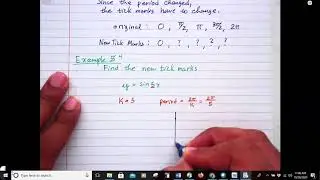 Since the period changed,
the tick marks have to change.
original : 0, π/2, π, 3π/2, 2π
New Tick Marks : 0, ?, ?, ?, ?
Example 4
Find the new tick marks
y = sin 5x
K = 5 period = 2π/K = 2π/5
Type here to search